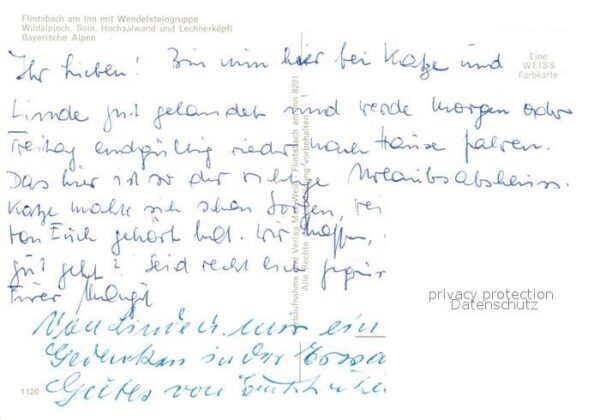 Flintsbach am Inn mit Wendelsteingruppe
Wildalpjoch, Soin, Hochsalwand und Lechnerköpfl
Bayerische Alpen
Eine
WEISS
Farbkarte
Ihr Lieben! Bin nun hier bei Katze und
Linde gut gelandet und werde morgen oder
Freitag endgültig wieder nach Hause fahren.
Das hier ist so der richtige Urlaubsabschluss.
Katze machte sich schon Sorgen,
von Euch gehört hat. Wir hoffen,
gut geht? Seid recht lieb
Eurer
Von Linde nur ein
Gedenken in der
Gutes von
1120
Farbaufnahme und Verlag Max Weiss Flintsbach am Inn 8201
Alle Rechte der Vervielfältigung vorbehalten
privacy protection
Datenschutz